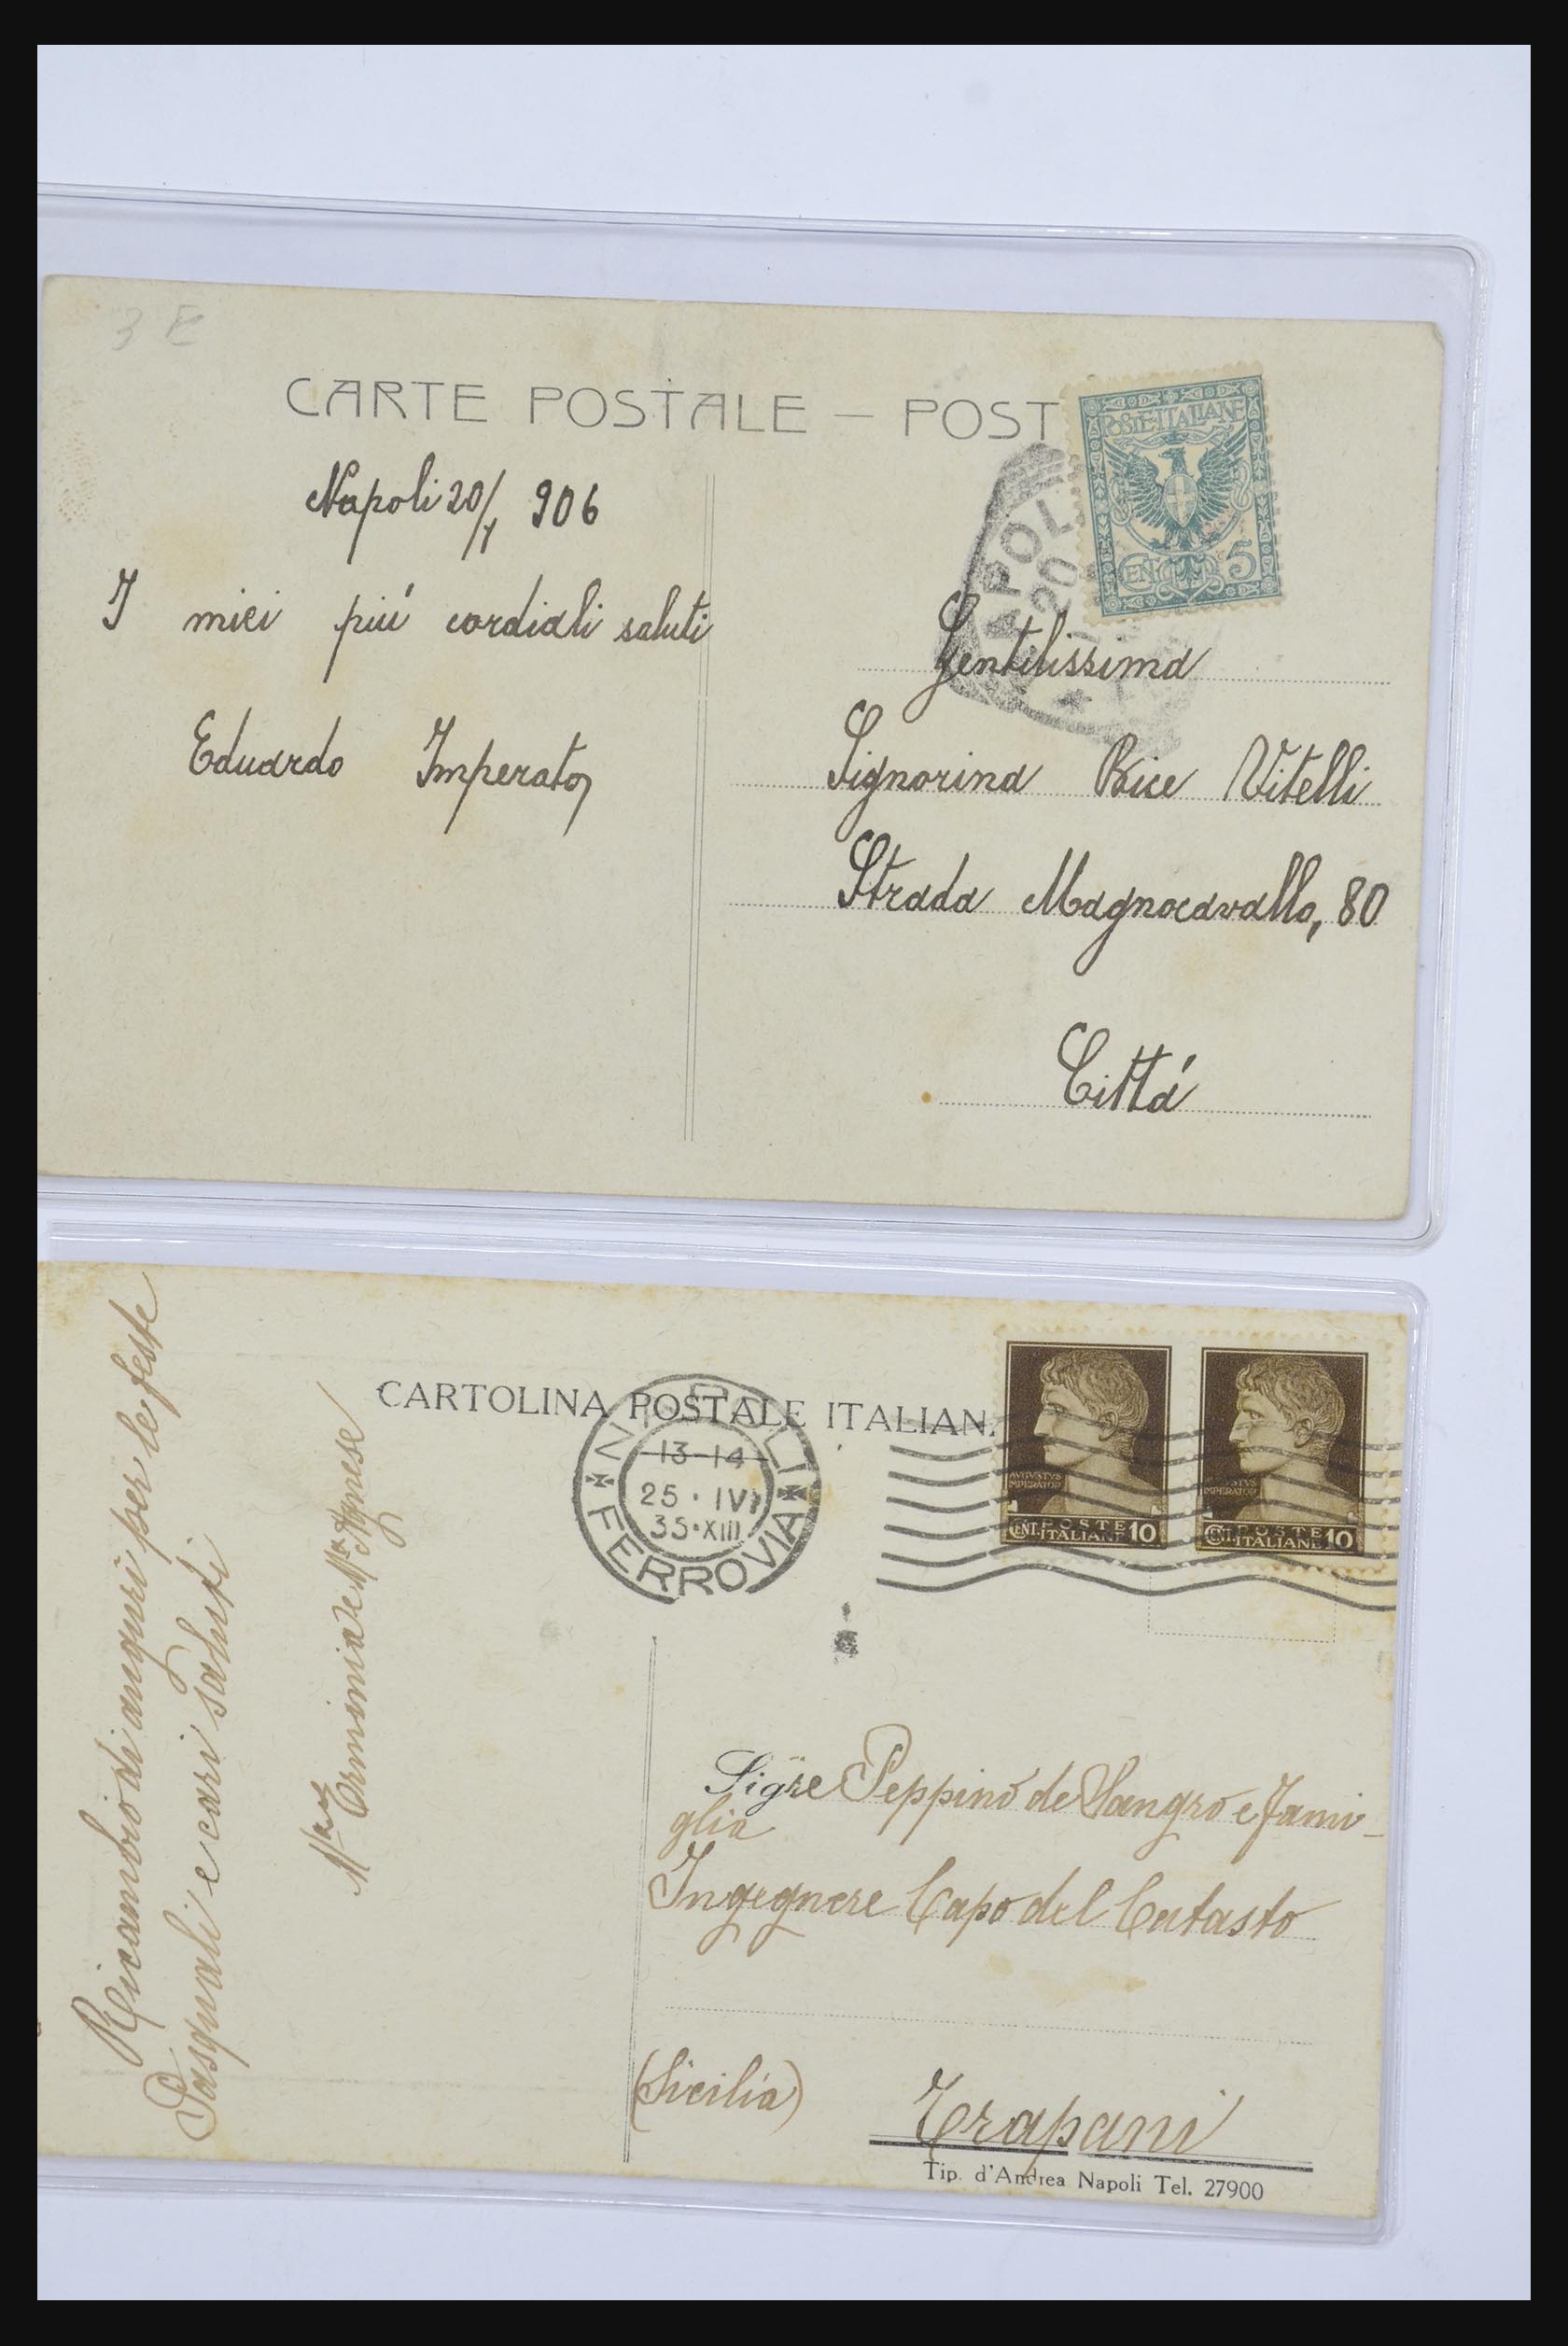 3 E
CARTE POSTALE — POST
POSTE ITALIANE
CENT 5
APOL
20
Napoli 20/1 906
I miei piú cordiali saluti
Eduardo Imperato
Gentilissima
Signorina Bice Vitelli
Strada Magnocavallo, 80
Cittá
CARTOLINA POSTALE ITALIAN
NAPOLI
13-14
25 · IV
35·XIII
FERROVIA
AVGVSTVS
IMPERATOR
POSTE
CENT. ITALIANE 10
STVS
IMPERATOR
POSTE
CENT. ITALIANE 10
Ricambio di auguri per le feste
Pasquali e cari saluti
Erminia e Mª Agnese
Sigre Peppino de Sangro e Fami-
glia
Ingegnere Capo del Catasto
(Sicilia)
Trapani
Tip. d'Andrea Napoli Tel. 27900